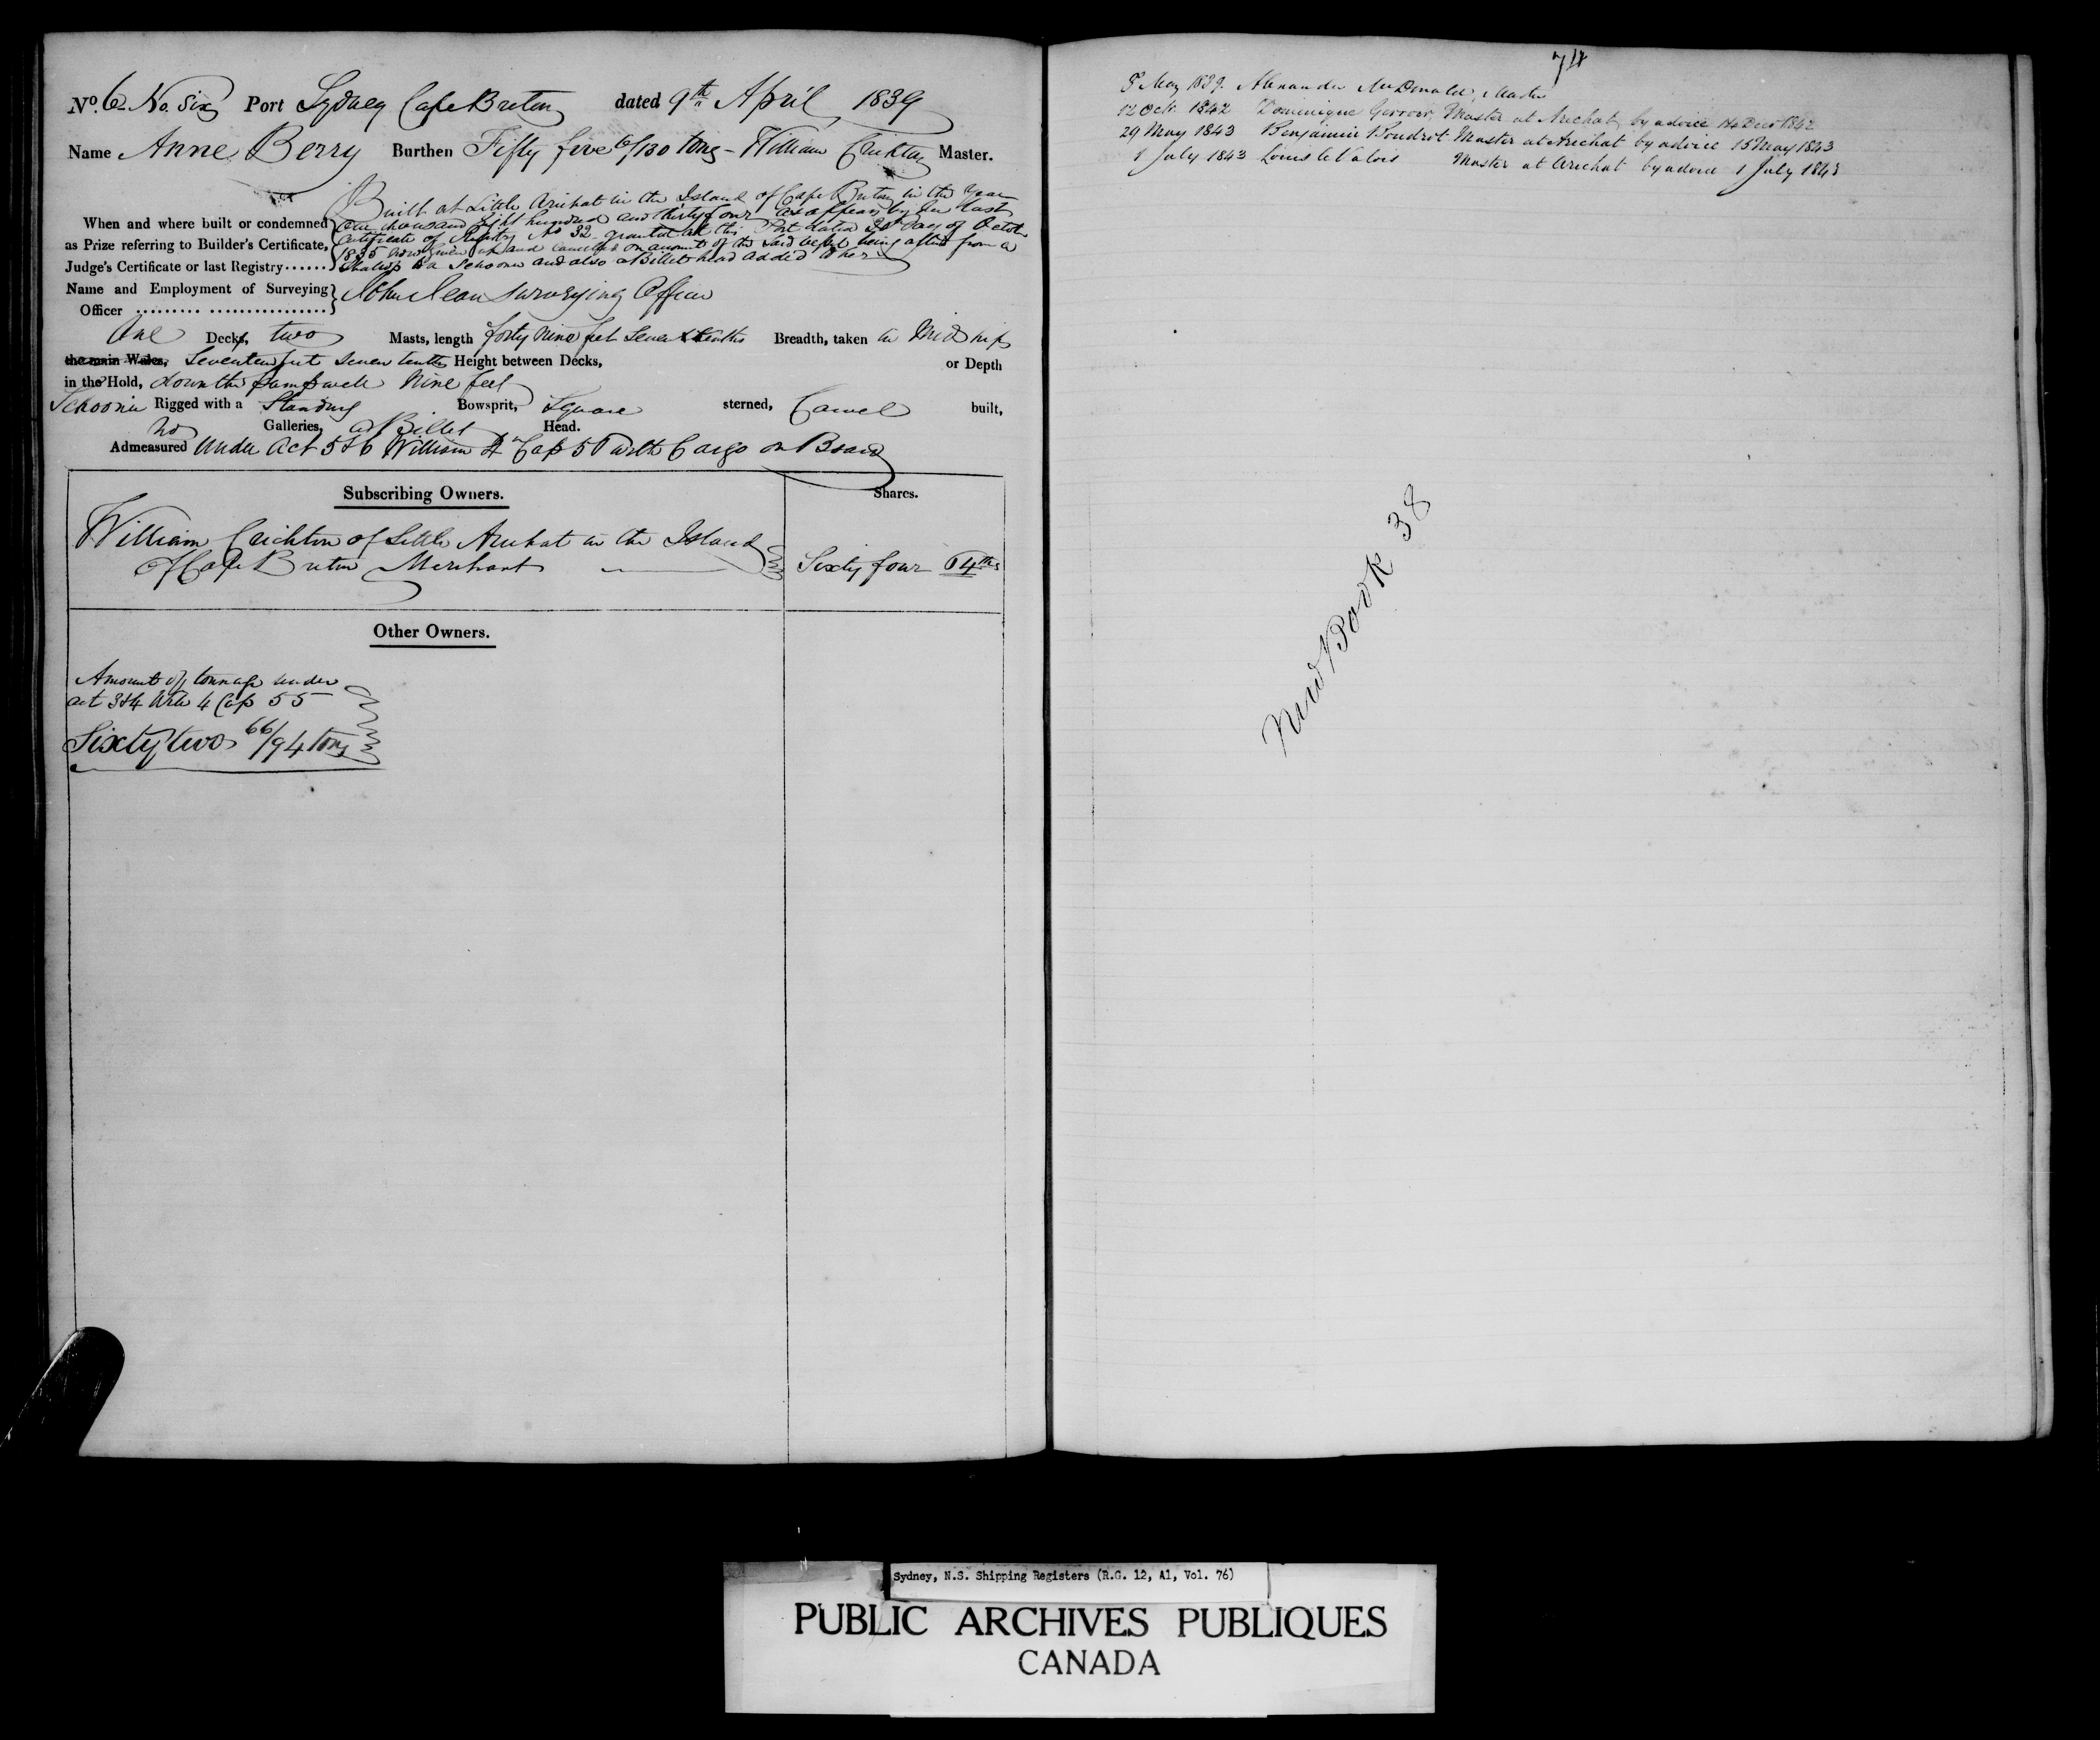 No. 6 No. Six Port Sydney Cape Breton dated 9th April 1839
Name Anne Berry Burthen Fifty five 6/130 tons - William Crichton Master.
Built at Little Arichat in the Island of Cape Breton in the Year
When and where built or condemned One thousand Eight hundred and thirty four as appears by her last
as Prize referring to Builder's Certificate, Certificate of Registry No 32 granted at this Port dated day of October
Judge's Certificate or last Registry...... 1835 now given up and cancelled on account of the said vessel being altered from a
Shallop to a Schooner and also a Billet head added to her
Name and Employment of Surveying John Jean Surveying Officer
Officer ......... .................
One Decks, two Masts, length forty nine feet seven tenths Breadth, taken in Midships
the main Wales, Seventeen feet seven tenths Height between Decks, or Depth
in the Hold, down the pumpwell Nine feet
Schooner Rigged with a Standing Bowsprit, Square sterned, Carvel built,
No Galleries, a Billet Head.
Admeasured Under Act 5 & 6 William 4 Cap 56 with Cargo on Board
Subscribing Owners. Shares.
William Crichton of Little Arichat in the Island
of Cape Breton Merchant Sixty four 64ths
Other Owners.
Amount of tonnage under
act 3 & 4 Wm 4 Cap 55
Sixty two 66/94 tons
74
8 May 1839. Alexander McDonald, Master
12 Octr. 1842 Dominique Master at Arichat by advice 14 Decr 1842
29 May 1843 Benjamin Boudrot Master at Arichat by advice 15 May 1843
1 July 1843 Louis le Valois Master at Arichat by advice 1 July 1843
New Book 38
Sydney, N.S. Shipping Registers (R.G. 12, A1, Vol. 76)
PUBLIC ARCHIVES PUBLIQUES
CANADA